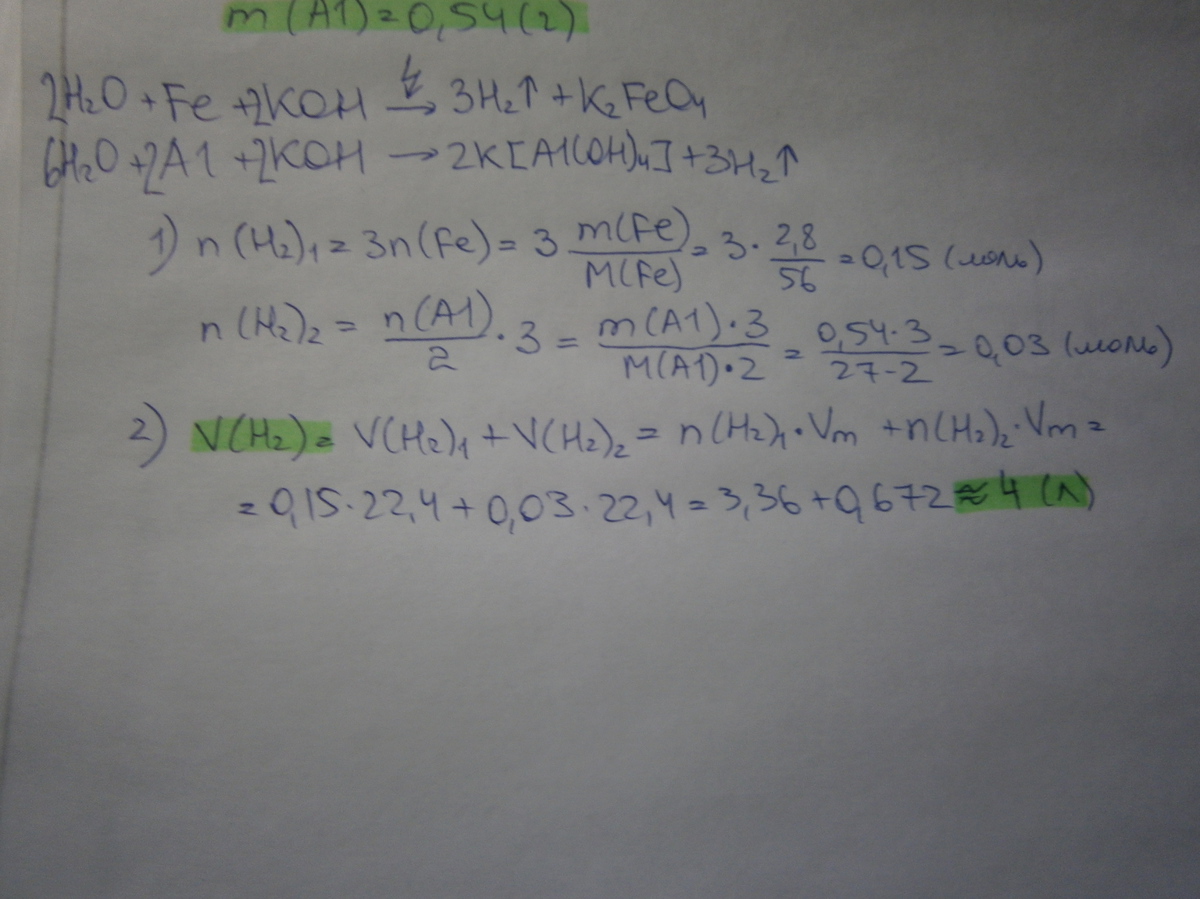 m(Al)=0,54(г)
2H₂O+Fe+2KOH →^↯ 3H₂↑+K₂FeO₄
6H₂O+2Al+2KOH → 2K[Al(OH)₄]+3H₂↑
1) n(H₂)₁=3n(Fe)=3 m(Fe)/M(Fe)=3·2,8/56=0,15(моль)
n(H₂)₂=n(Al)/2·3=m(Al)·3/M(Al)·2=0,54·3/27·2=0,03(моль)
2) V(H₂)=V(H₂)₁+V(H₂)₂=n(H₂)₁·Vm+n(H₂)₂·Vm=
=0,15·22,4+0,03·22,4=3,36+0,672≈4(л)